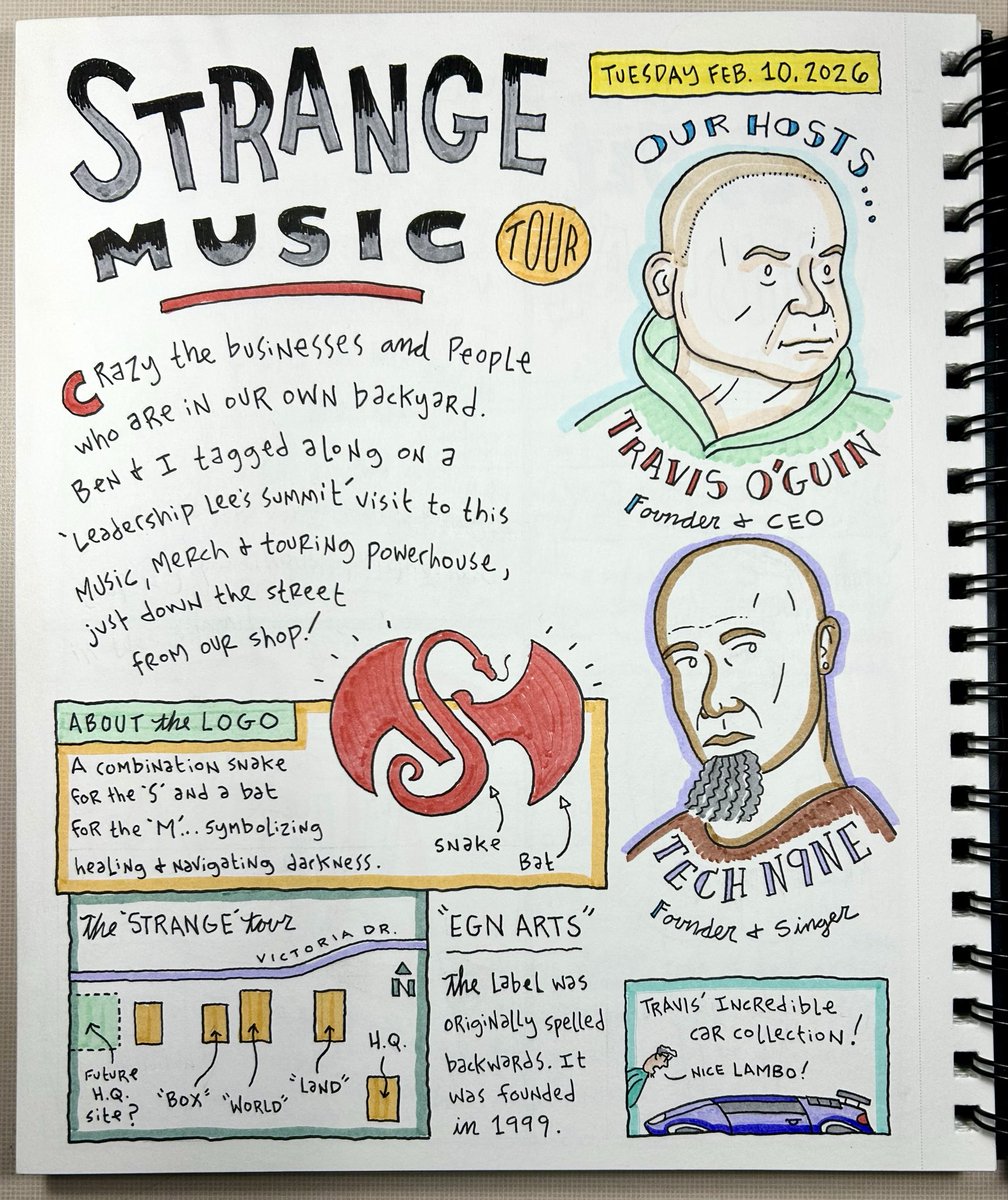 STRANGE
MUSIC
TOUR
TUESDAY FEB. 10, 2026
OUR HOSTS...
CRAZY the businesses and People
who are in our own backyard.
Ben & I tagged along on a
"Leadership Lee's Summit" visit to this
Music, Merch & touring powerhouse,
just down the street
from our shop!
TRAVIS O'GUIN
Founder & CEO
TECH N9NE
Founder & Singer
ABOUT the LOGO
A combination snake
for the "S" and a bat
for the "M"... symbolizing
healing & navigating darkness.
snake
Bat
The "STRANGE" tour
VICTORIA DR.
N
H.Q.
Future
H.Q.
site?
"BOX"
"WORLD"
"LAND"
"EGN ARTS"
The Label was
originally spelled
backwards. It
was founded
in 1999.
TRAVIS' INCREDIBLE
car collection!
NICE LAMBO!